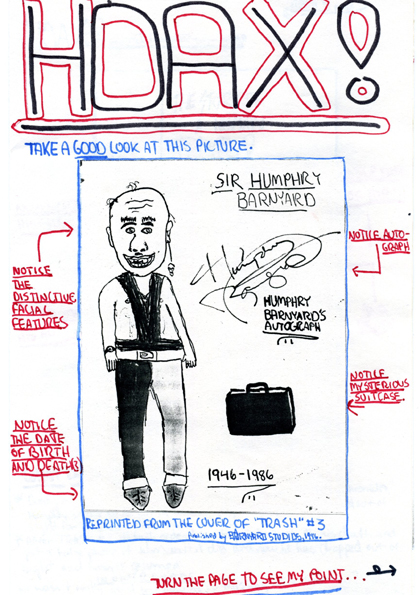 HOAX!
TAKE A GOOD LOOK AT THIS PICTURE.
SIR HUMPHRY
BARNYARD
NOTICE AUTO-
GRAPH
Humphry
HUMPHRY
BARNYARD'S
AUTOGRAPH
NOTICE
THE
DISTINCTIVE
FACIAL
FEATURES
NOTICE
MYSTERIOUS
SUITCASE.
NOTICE
THE DATE
OF BIRTH
AND DEATH(S)
1946-1986
REPRINTED FROM THE COVER OF "TRASH" #3
PUBLISHED BY BARNYARD STUDIOS,
TURN THE PAGE TO SEE MY POINT...